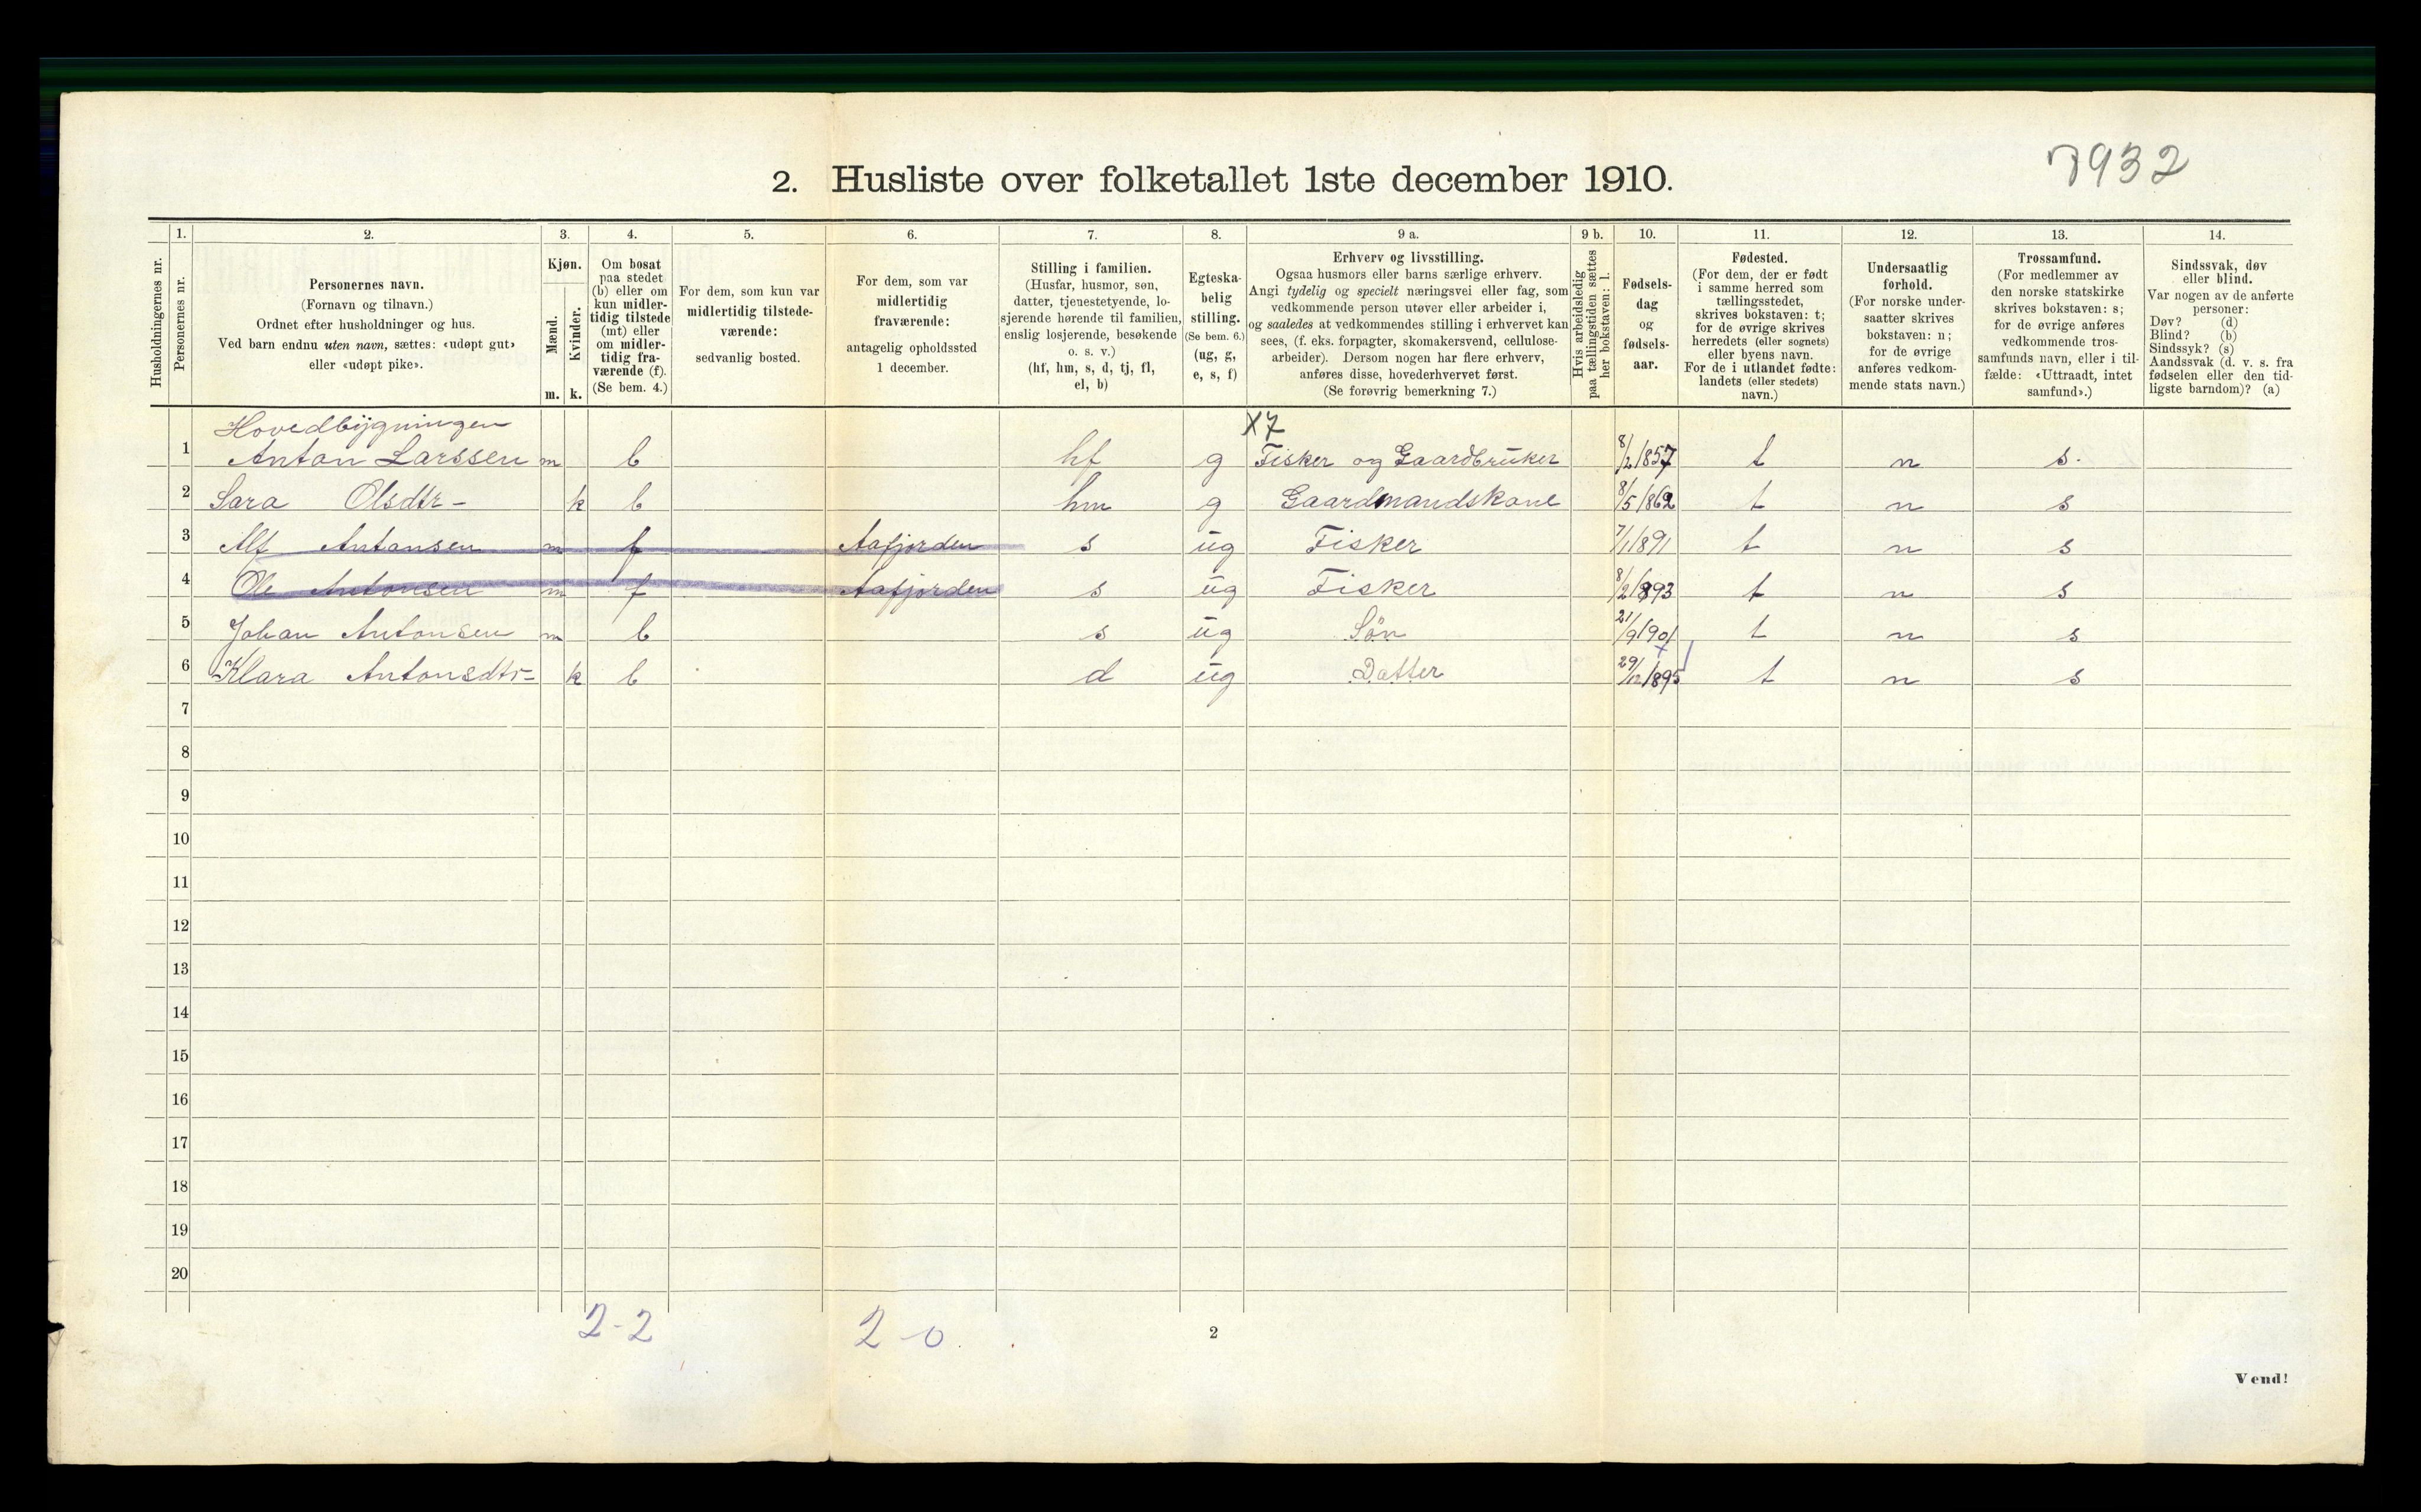 7932
2. Husliste over folketallet 1ste december 1910.
Husholdningernes nr.
1.
Personernes nr.
2.
Personernes navn.
(Fornavn og tilnavn.)
Ordnet efter husholdninger og hus.
Ved barn endnu uten navn, sættes: «udøpt gut»
eller «udøpt pike».
3.
Kjøn.
Mænd.
Kvinder.
m. k.
4.
Om bosat
paa stedet
(b) eller om
kun midler-
tidig tilstede
(mt) eller
om midler-
tidig fra-
værende (f).
(Se bem. 4.)
5.
For dem, som kun var
midlertidig tilstede-
værende:
sedvanlig bosted.
6.
For dem, som var
midlertidig
fraværende:
antagelig opholdssted
1 december.
7.
Stilling i familien.
(Husfar, husmor, søn,
datter, tjenestetyende, lo-
sjerende hørende til familien,
enslig losjerende, besøkende
o. s. v.)
(hf, hm, s, d, tj, fl,
el, b)
8.
Egteska-
belig
stilling.
(Se bem. 6.)
(ug, g,
e, s, f)
9 a.
Erhverv og livsstilling.
Ogsaa husmors eller barns særlige erhverv.
Angi tydelig og specielt næringsvei eller fag, som
vedkommende person utøver eller arbeider i,
og saaledes at vedkommendes stilling i erhvervet kan
sees, (f. eks. forpagter, skomakersvend, cellulose-
arbeider). Dersom nogen har flere erhverv,
anføres disse, hovederhvervet først.
(Se forøvrig bemerkning 7.)
9 b.
Hvis arbeidsledig
paa tællingstiden sættes
her bokstaven: l.
10.
Fødsels-
dag
og
fødsels-
aar.
11.
Fødested.
(For dem, der er født
i samme herred som
tællingsstedet,
skrives bokstaven: t;
for de øvrige skrives
herredets (eller sognets)
eller byens navn.
For de i utlandet fødte:
landets (eller stedets)
navn.)
12.
Undersaatlig
forhold.
(For norske under-
saatter skrives
bokstaven: n;
for de øvrige
anføres vedkom-
mende stats navn.)
13.
Trossamfund.
(For medlemmer av
den norske statskirke
skrives bokstaven: s;
for de øvrige anføres
vedkommende tros-
samfunds navn, eller i til-
fælde: «Uttraadt, intet
samfund».)
14.
Sindssvak, døv
eller blind.
Var nogen av de anførte
personer:
Døv? (d)
Blind? (b)
Sindssyk? (s)
Aandssvak (d. v. s. fra
fødselen eller den tid-
ligste barndom)? (a)
Hovedbygningen X7
1 Anton Larssen m b hf g Fisker og Gaardbruker 8/2 1857 t n s.
2 Sara Olsdtr- k b hm g Gaardmandskone 8/5 1862 t n s
3 Alf Antonsen m f Aafjorden s ug Fisker 7/1 1891 t n s
4 Ole Antonsen m f Aafjorden s ug Fisker 8/2 1893 t n s
5 Johan Antonsen m b s ug Sön 21/9 1901 t n s
6 Klara Antonsdtr- k b d ug Datter 29/12 1895 t n s
7
8
9
10
11
12
13
14
15
16
17
18
19
20
2-2 2-0.
2
Vend!